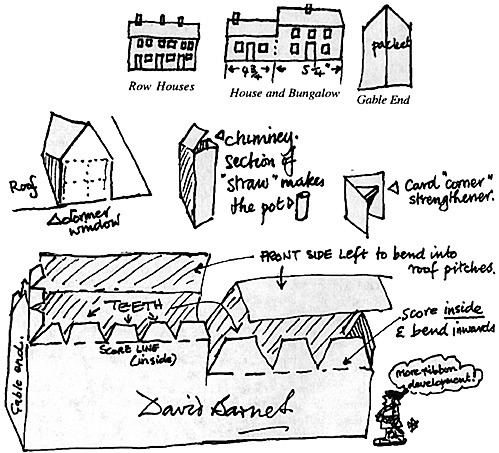 packet
4 3/4" 5 1/4"
Row Houses
House and Bungalow
Gable End
Roof
dormer
window
chimney.
section of
"straw" makes
the pot
Card "corner"
strengthener.
FRONT SIDE left to bend into
roof pitches.
TEETH
SCORE LINE
(inside)
Score inside
& bend inwards
Gable end.
David Barnet
more ribbon
development!